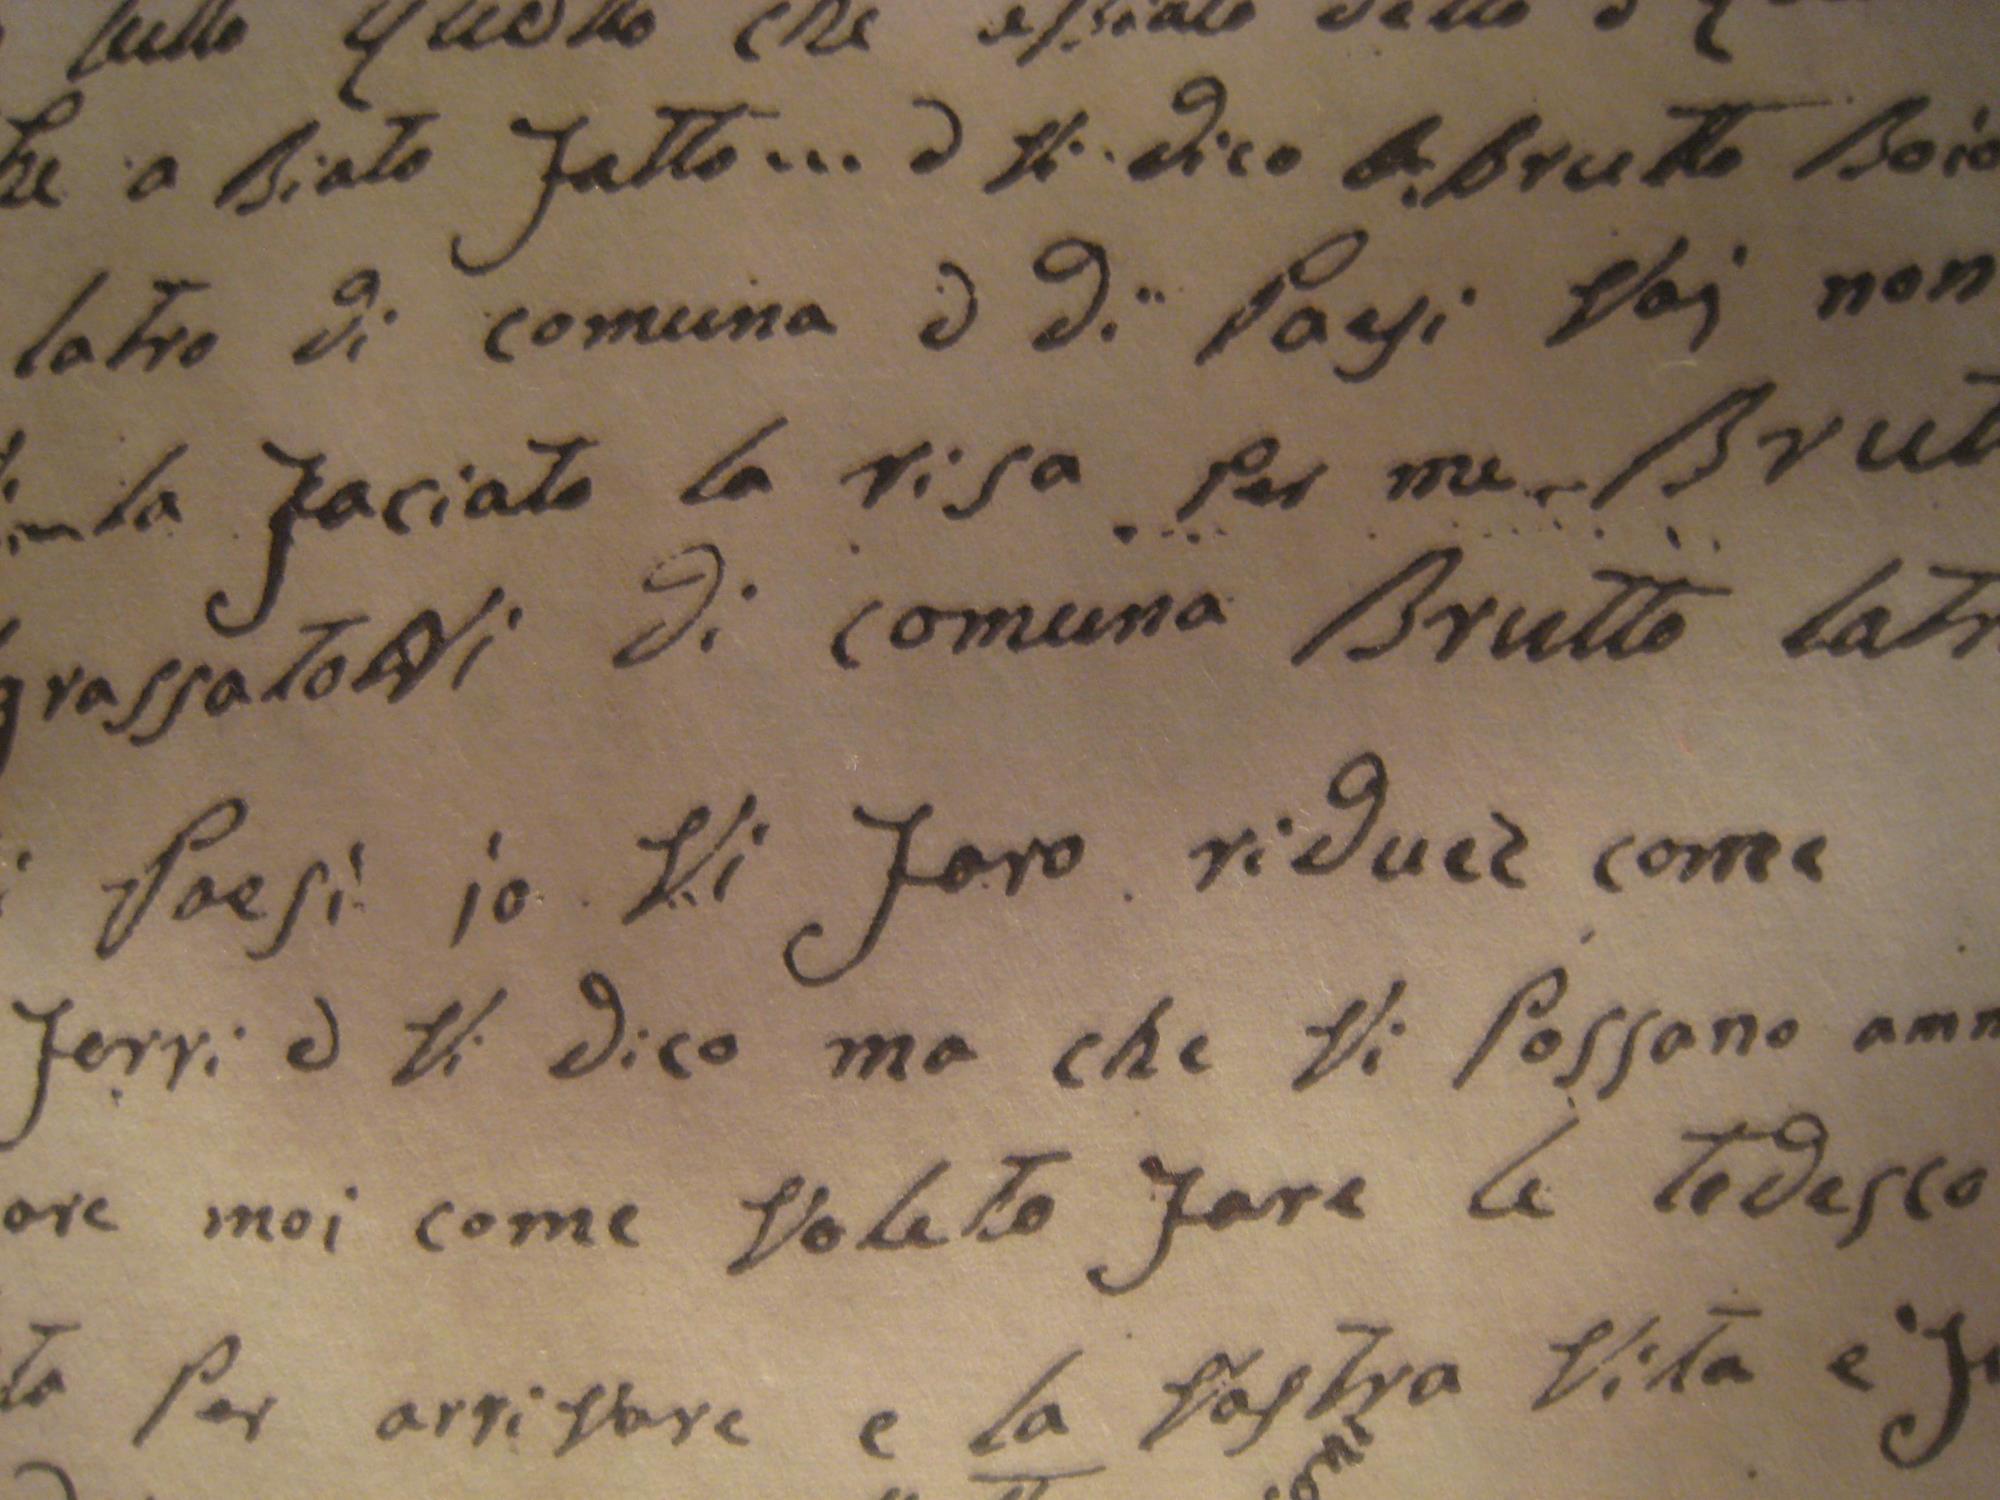 tutto quello che
he a Biato fatto... e Vi dico Brutto Boio
latro di comuna e di Paesi Voj non
la faciato la risa Per me Brut
grassatoVi di comuna Brutto latr
i Paesi jo Vi faro riduez come
ferri e Vi dico ma che Vi Possano amm
are moi come Voleto fare le tedesco
to Per arriVare e la Vostra Vita e